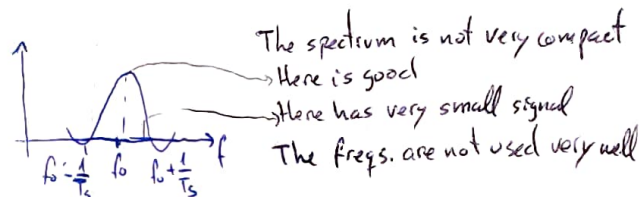 The spectrum is not very compact
Here is good
Here has very small signal
The freqs. are not used very well
f₀-1/Ts f₀ f₀+1/Ts f